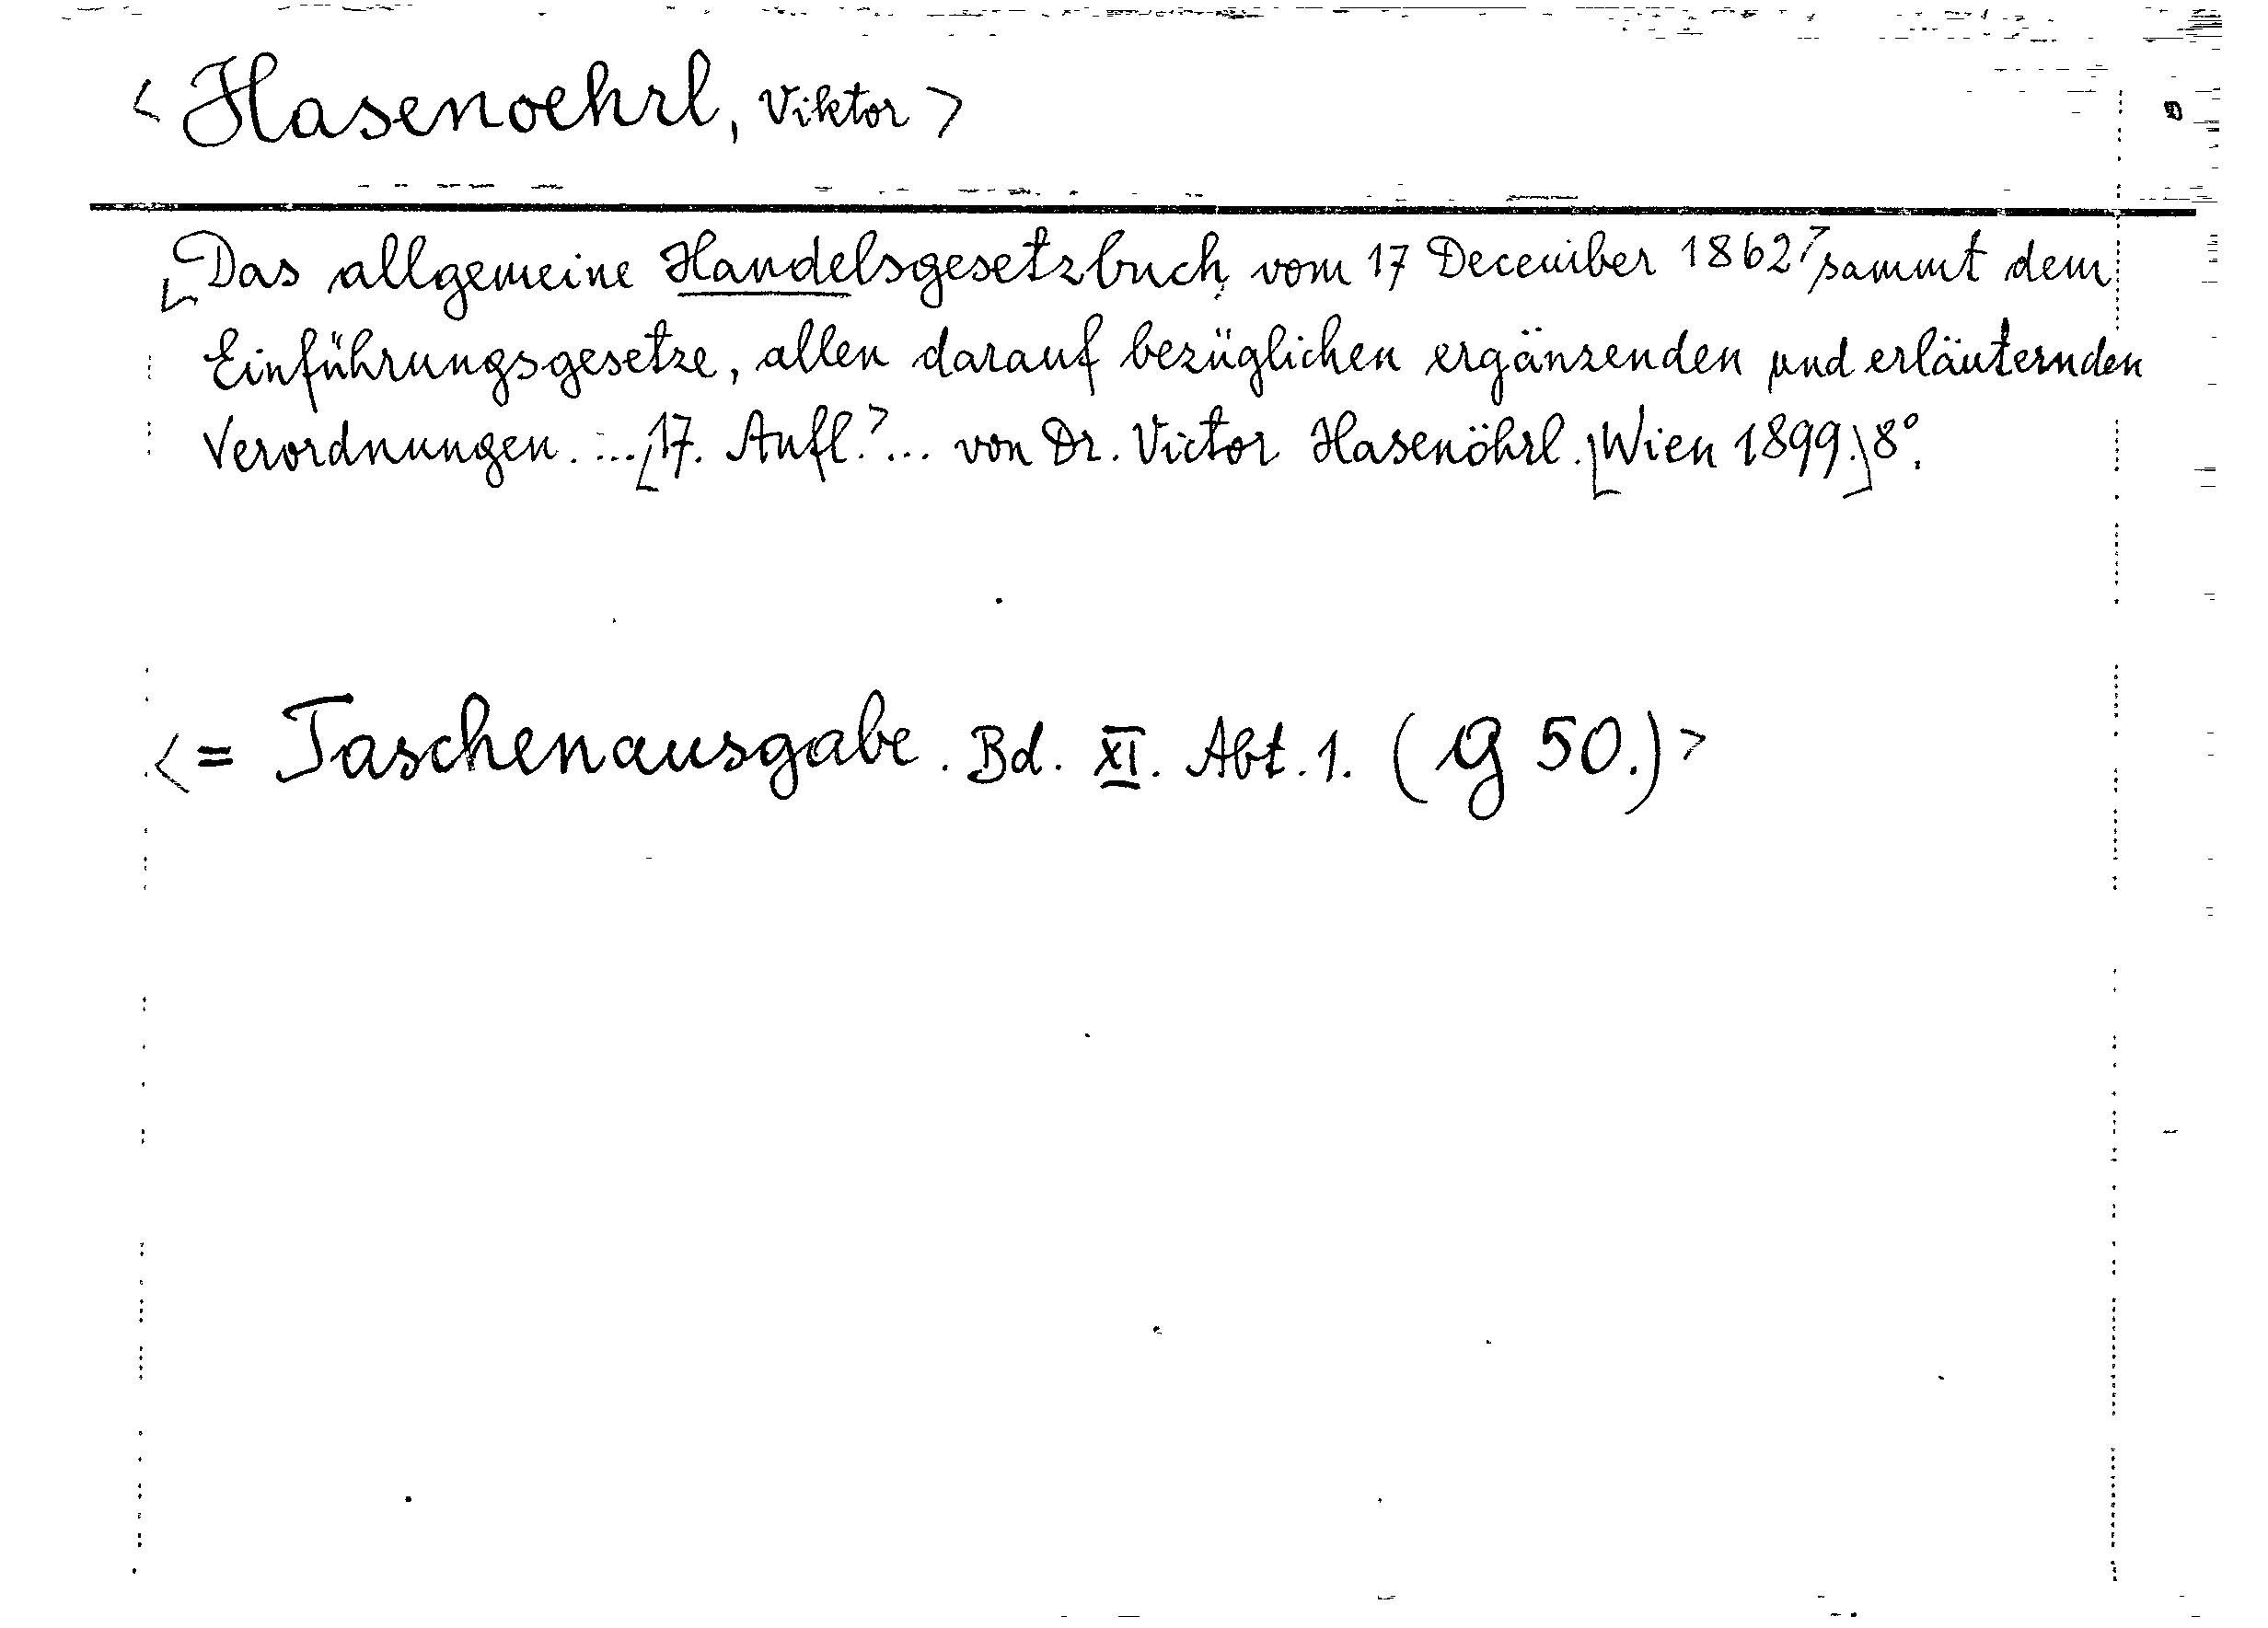 <Hasenoehrl, Viktor>
[Das allgemeine Handelsgesetzbuch, vom 17 December 1862] sammt dem
Einführungsgesetze, allen darauf bezüglichen ergänzenden und erläuternden
Verordnungen. ... [17. Aufl.] ... von Dr. Victor Hasenöhrl. [Wien 1899.] 8°.
<= Taschenausgabe. Bd. XI. Abt. 1. (G 50.)>